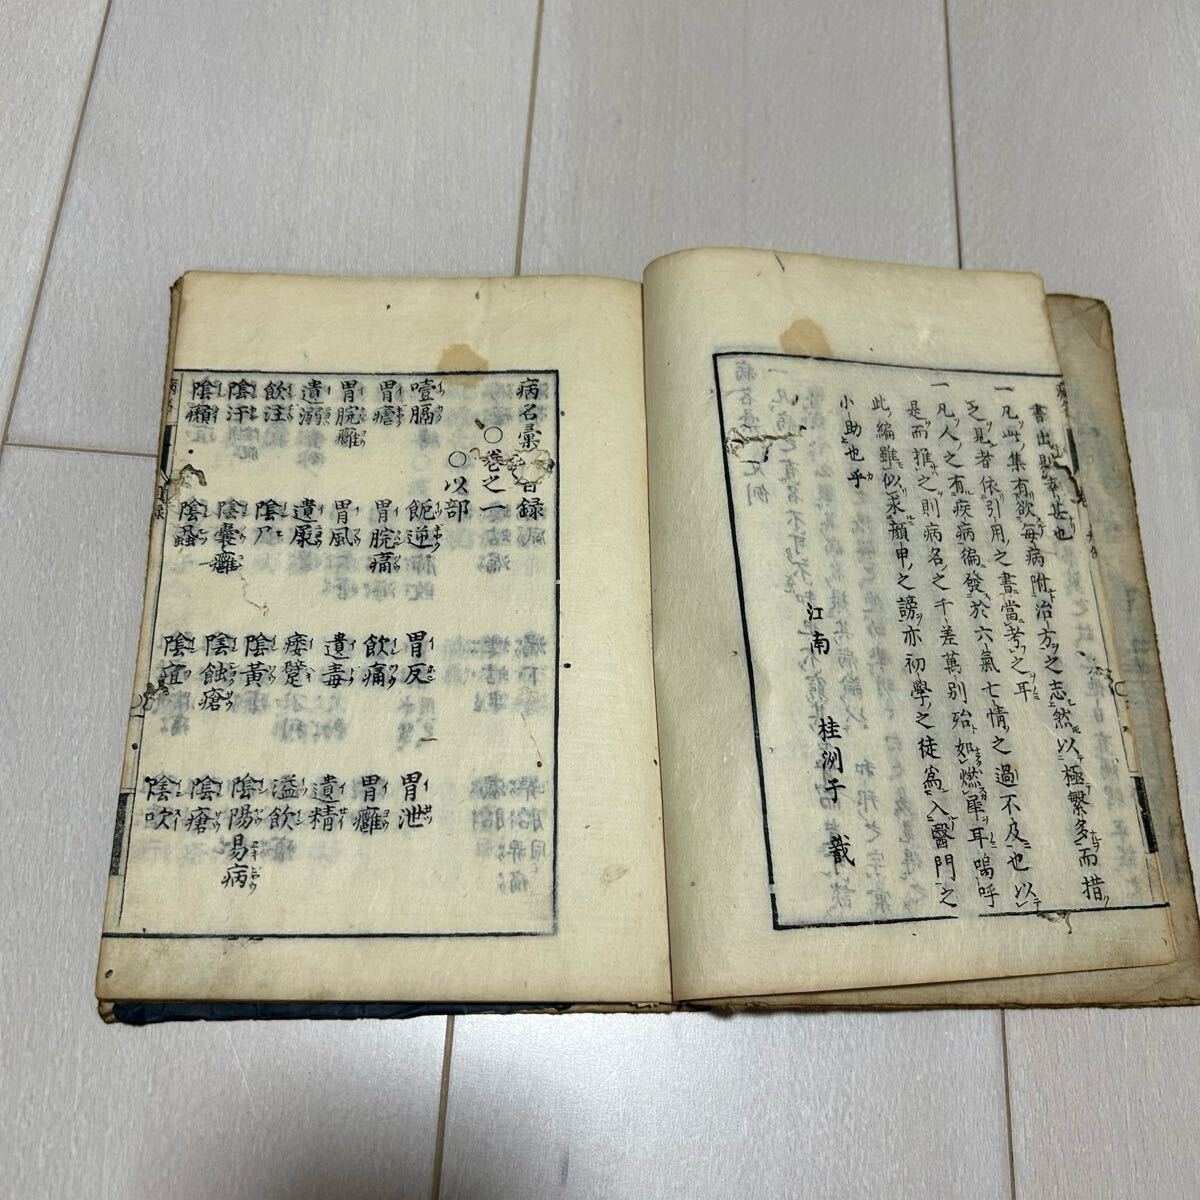 書出則幸甚也
一凡此集有欲毎病附治方之志然以極繁多而措
之見者依引用之書當考之耳
一凡人之有疾病徧發於六氣七情之過不及也以
是而推之則病名之千差萬別殆如燃犀耳嗚呼
此編雖似求顔甲之謗亦初學之徒爲入醫門之
小助也乎
江南 桂洲子 識
病名彙 目録
○卷之一
○以部
噎膈 軛逆 胃反 胃泄
胃瘡 胃脘痛 飲痛 胃癰
胃脘癰 胃風 遺毒 遺精
遺溺 遺尿 痿躄 溢飲
飲注 陰乃 陰黃 陰陽易病
陰汗 陰嚢癰 陰蝕瘡 陰瘡
陰㿗 陰蝨 陰疽 陰吹